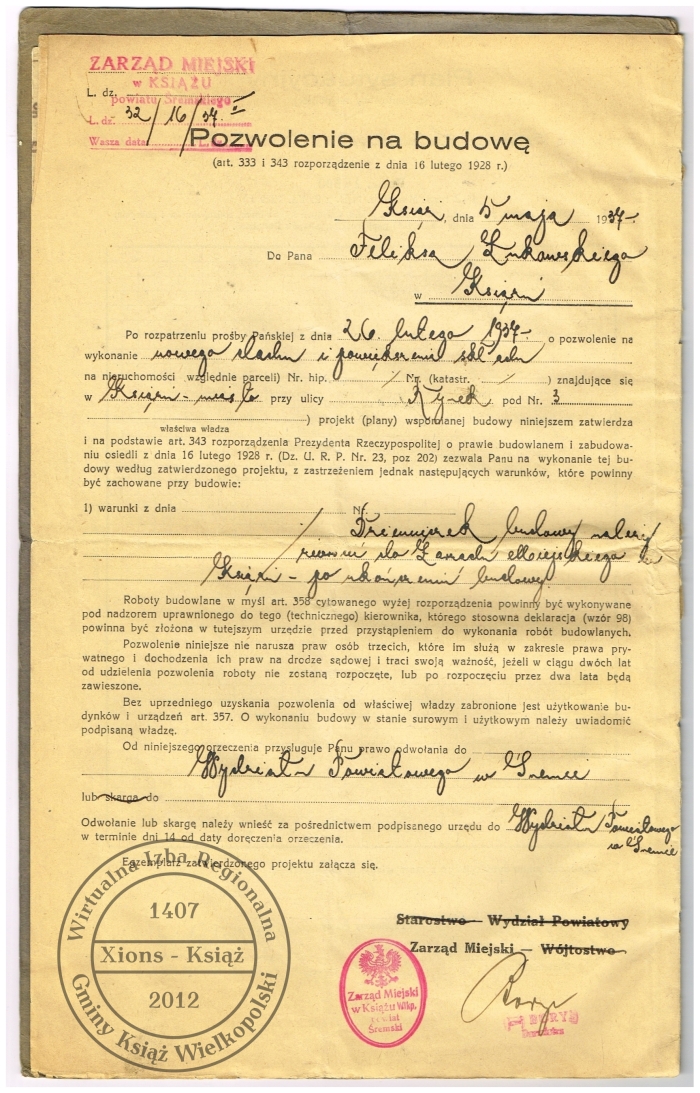 ZARZĄD MIEJSKI
w KSIĄŻU
L. dz.
powiatu Śremskiego
L. dz. 32/16/37. II
Wasza data
Pozwolenie na budowę
(art. 333 i 343 rozporządzenie z dnia 16 lutego 1928 r.)
Książ, dnia 5 maja 1937.
Do Pana Feliksa Łukawskiego
w Książu
Po rozpatrzeniu prośby Pańskiej z dnia 26. lutego 1937. o pozwolenie na
wykonanie nowego dachu i powiększenie
na nieruchomości względnie parceli) Nr. hip. / Nr. (katastr. / ) znajdujące się
w Książu - miasto przy ulicy Rynek pod Nr. 3
) projekt (plany) wspomianej budowy niniejszem zatwierdza
właściwa władza
i na podstawie art. 343 rozporządzenia Prezydenta Rzeczypospolitej o prawie budowlanem i zabudowa-
niu osiedli z dnia 16 lutego 1928 r. (Dz. U. R. P. Nr. 23, poz 202) zezwala Panu na wykonanie tej bu-
dowy według zatwierdzonego projektu, z zastrzeżeniem jednak następujących warunków, które powinny
być zachowane przy budowie:
1) warunki z dnia Nr.
Dzienniczek budowy należy
do Zarządu Miejskiego w
Książu - po ukończeniu budowy.
Roboty budowlane w myśl art. 358 cytowanego wyżej rozporządzenia powinny być wykonywane
pod nadzorem uprawnionego do tego (technicznego) kierownika, którego stosowna deklaracja (wzór 98)
powinna być złożona w tutejszym urzędzie przed przystąpieniem do wykonania robót budowlanych.
Pozwolenie niniejsze nie narusza praw osób trzecich, które im służą w zakresie prawa pry-
watnego i dochodzenia ich praw na drodze sądowej i traci swoją ważność, jeżeli w ciągu dwóch lat
od udzielenia pozwolenia roboty nie zostaną rozpoczęte, lub po rozpoczęciu przez dwa lata będą
zawieszone.
Bez uprzedniego uzyskania pozwolenia od właściwej władzy zabronione jest użytkowanie bu-
dynków i urządzeń art. 357. O wykonaniu budowy w stanie surowym i użytkowym należy uwiadomić
podpisaną władzę.
Od niniejszego orzeczenia przysługuje Panu prawo odwołania do
Wydziału Powiatowego w Śremie
lub skarga do
Odwołanie lub skargę należy wnieść za pośrednictwem podpisznego urzędu do Wydziału Powiatowego
w terminie dni 14 od daty doręczenia orzeczenia. w Śremie
Egzemplarz zatwierdzonego projektu załącza się.
Starostwo - Wydział Powiatowy
Zarząd Miejski — Wójtostwo
Zarząd Miejski
w Książu Wlkp.
powiat
Śremski
Wirtualna Izba Regionalna
1407
Xions - Książ
2012
Gminy Książ Wielkopolski